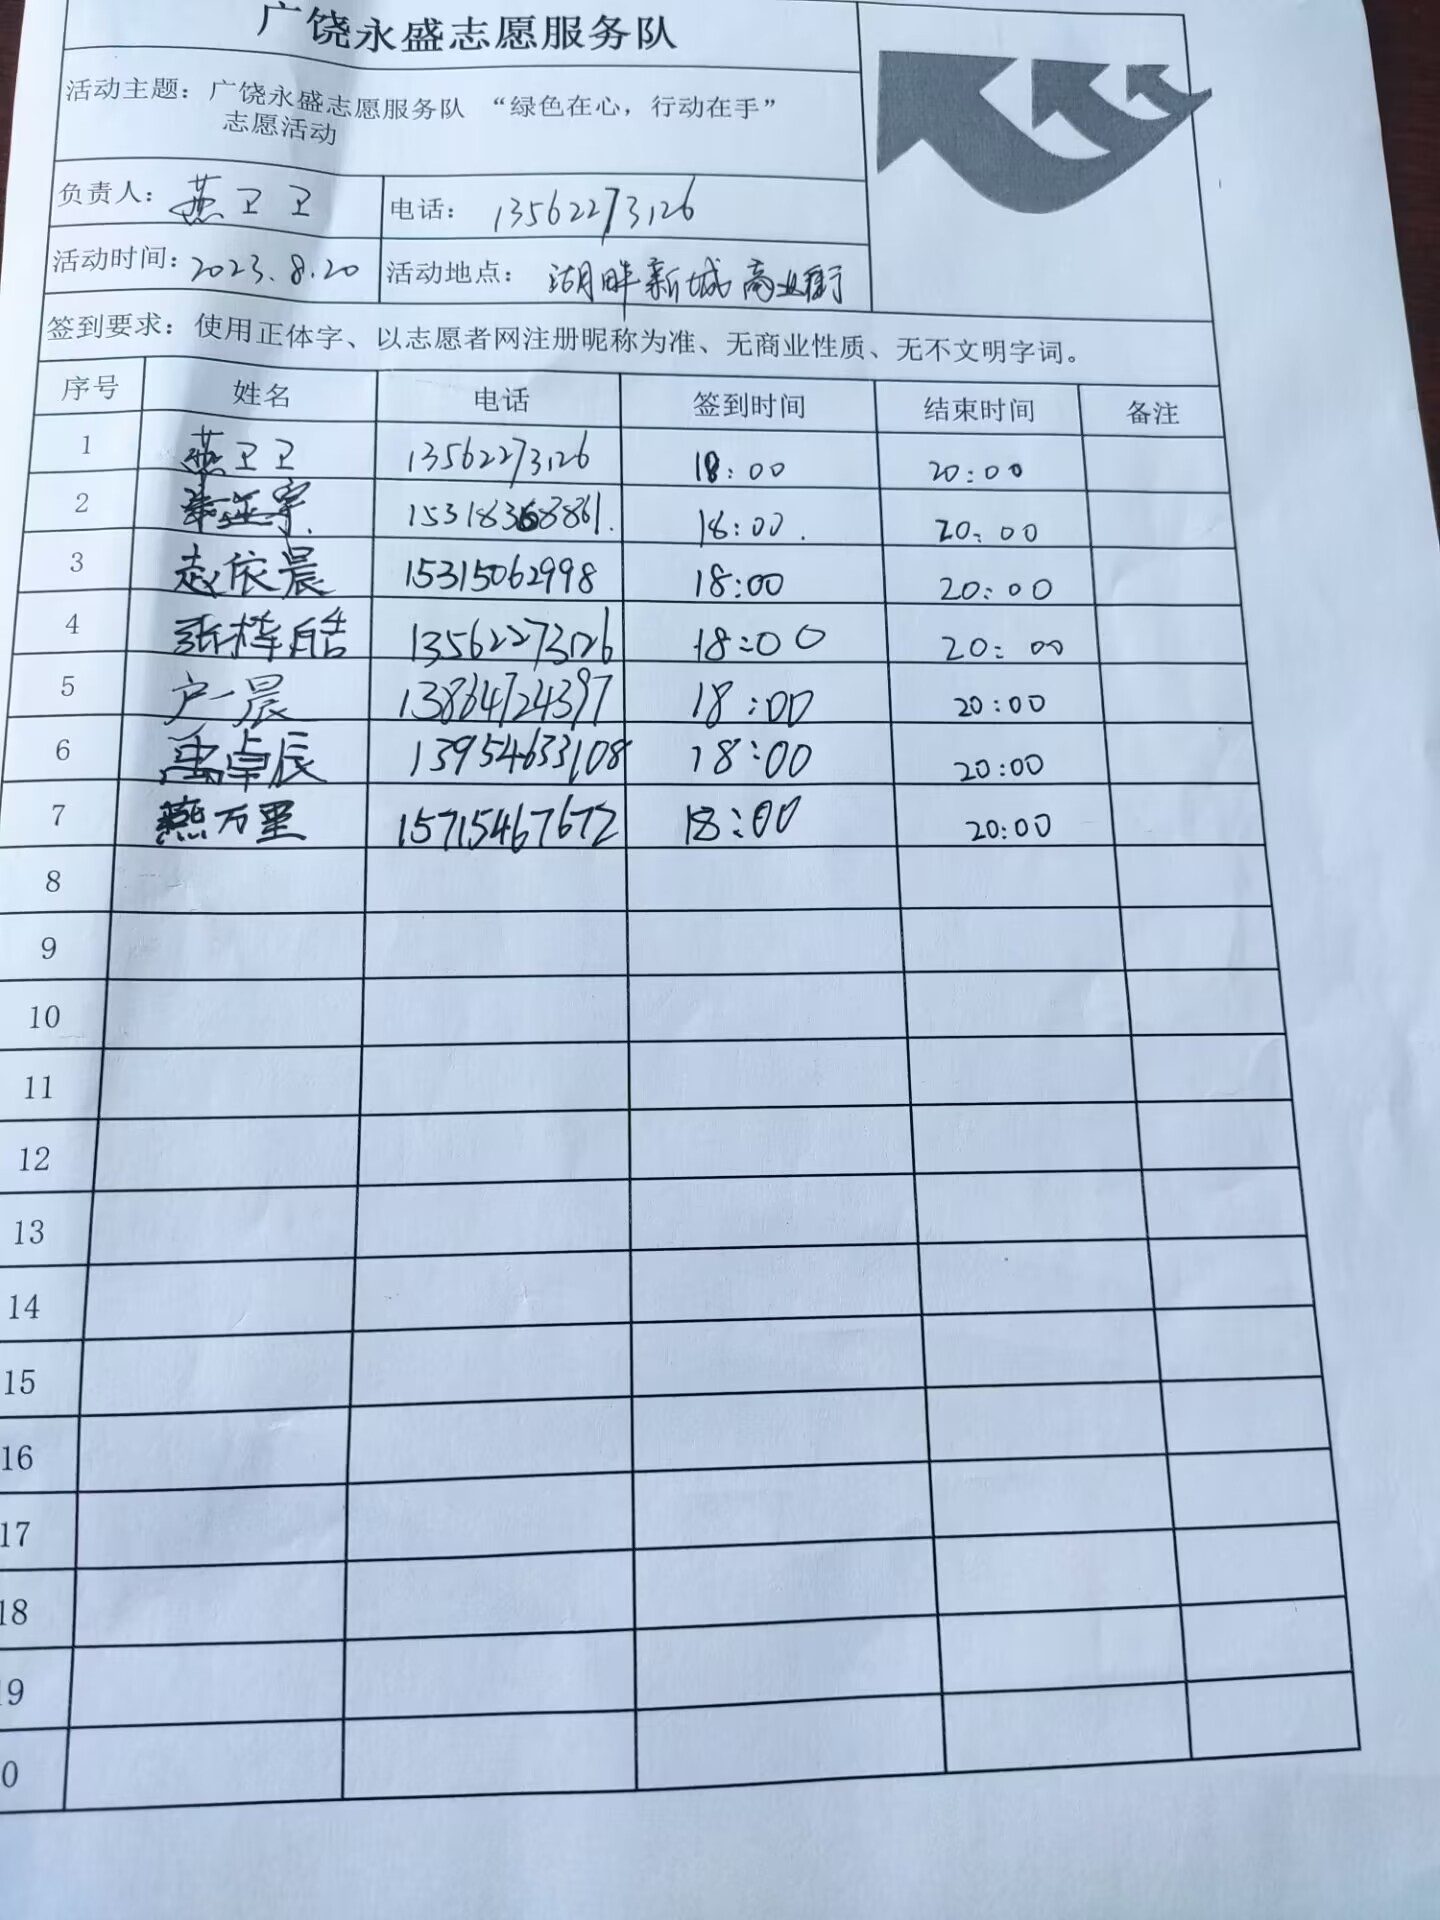 广饶永盛志愿服务队
活动主题：广饶永盛志愿服务队 “绿色在心，行动在手”
志愿活动
负责人：燕卫卫 电话：13562273126
活动时间：2023.8.20 活动地点：湖畔新城商业街
签到要求：使用正体字、以志愿者网注册昵称为准、无商业性质、无不文明字词。
序号 姓名 电话 签到时间 结束时间 备注
1 燕卫卫 13562273126 18:00 20:00
2 15318368861. 18:00. 20:00
3 赵依晨 15315062998 18:00 20:00
4 张梓皓 13562273126 18:00 20:00
5 户一晨 13864724397 18:00 20:00
6 卓辰 13954633108 18:00 20:00
7 燕万里 15715467672 18:00 20:00
8
9
10
11
12
13
14
15
16
17
18
19
0